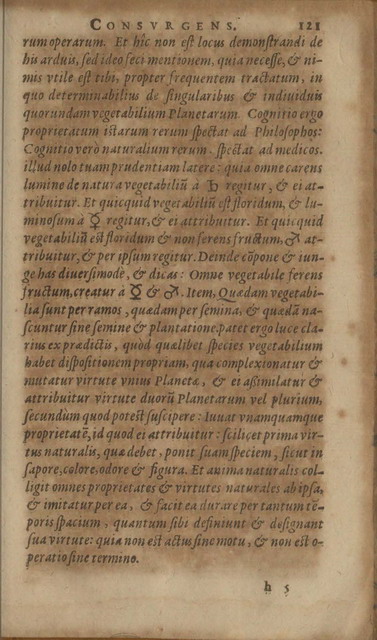 CONSVRGENS. 121
rum operarum. Et hîc non est locus demonstrandi de
his arduis, sed ideo feci mentionem, quia necesse, & ni-
mis vtile est tibi, propter frequentem tractatum, in
quo determinabilius de singularibus & indiuiduis
quorundam vegetabilium Planetarum. Cognitio ergo
proprietatum istarum rerum spectat ad Philosophos:
Cognitio verò naturalium rerum, spectat ad medicos.
illud nolo tuam prudentiam latere: quia omne carens
lumine de natura vegetabiliũ à ♄ regitur, & ei at-
tribuitur. Et quicquid vegetabiliũ est floridum, & lu-
minosum à ☿ regitur, & ei attribuitur. Et quicquid
vegetabiliũ est floridum & non ferens fructum, ♂ at-
tribuitur, & per ipsum regitur. Deinde cõpone & iun-
ge has diuersimodè, & dicas: Omne vegetabile ferens
fructum, creatur à ☿ & ♂. Item, Quædam vegetabi-
lia sunt per ramos, quædam per semina, & quædã na-
scuntur sine semine & plantatione. patet ergo luce cla-
rius ex prædictis, quòd quælibet species vegetabilium
habet dispositionem propriam, qua complexionatur &
mutatur virtute vnius Planetæ, & ei assimilatur &
attribuitur virtute duorũ Planetarum vel plurium,
secundum quod potest suscipere: Iuuat vnamquamque
proprietatẽ, id quod ei attribuitur: scilicet prima vir-
tus naturalis, quæ debet, ponit suam speciem, sicut in
sapore, colore, odore & figura. Et anima naturalis col-
ligit omnes proprietates & virtutes naturales ab ipsa,
& imitatur per ea, & facit ea durare per tantum tẽ-
poris spacium, quantum sibi definiunt & designant
sua virtute: quia non est actus sine motu, & non est o-
peratio sine termino.
h 5